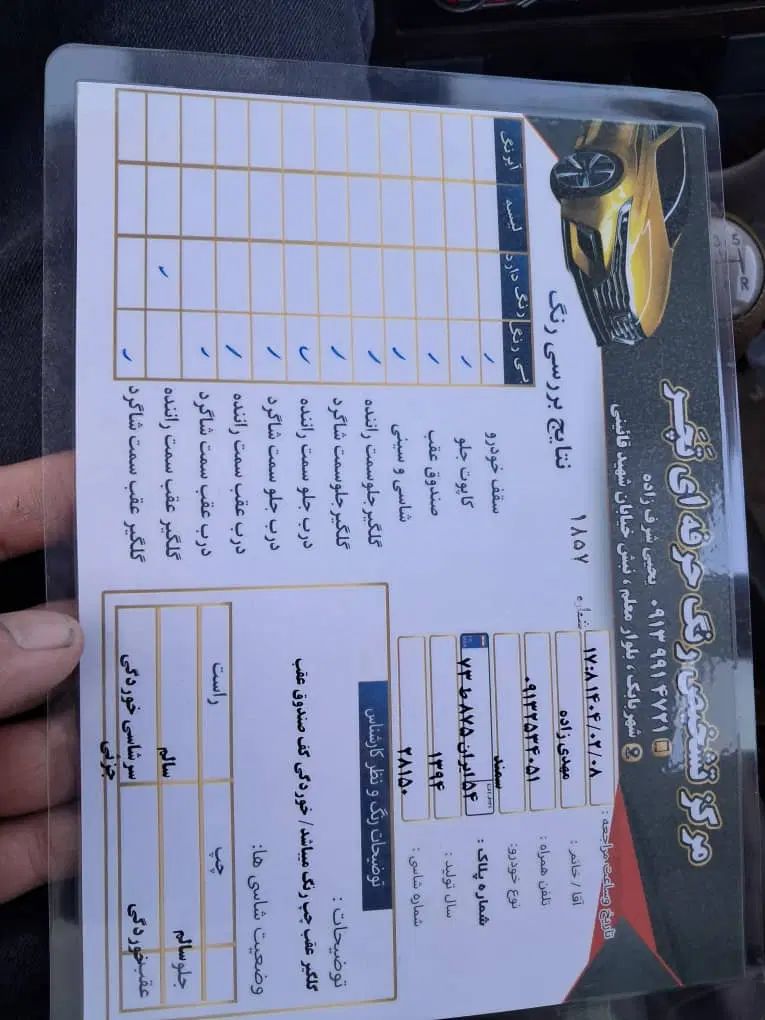 مرکز تشخیص رنگ حرفه ای تَچَـر
یحیی شرف زاده ۰۹۱۳ ۹۹۱ ۴۷۲۱
شهربابک ، بلوار معلم ، نبش خیابان شهید قائینی
تاریخ وساعت مراجعه : ۱۷:۸ ۱۴۰۴/۰۲/۰۸
شماره ۱۸۵۷
آقا / خانم : مهدی زاده
تلفن همراه : ۰۹۱۳۲۵۳۴۰۵۱
نوع خودرو: سمند
شماره پلاک : ۵۴ ایران ۸۷۵ ط ۷۳
سال تولید : ۱۳۹۴
شماره شاسی : ۲۸۱۵۰
نتایج بررسی رنگ
بی رنگ رنگ دارد لیسه آبرنگ
سقف خودرو ✓
کاپوت جلو ✓
صندوق عقب ✓
شاسی و سینی ✓
گلگیر جلو سمت راننده ✓
گلگیر جلو سمت شاگرد ✓
درب جلو سمت راننده ✓
درب جلو سمت شاگرد ✓
درب عقب سمت راننده ✓
درب عقب سمت شاگرد ✓
گلگیر عقب سمت راننده ✓
گلگیر عقب سمت شاگرد ✓
توضیحات رنگ و نظر کارشناس
توضیحات :
گلگیر عقب چپ رنگ میباشد / خوردگی کف صندوق عقب
وضعیت شاسی ها:
چپ راست
جلو سالم سالم
عقب خوردگی سرشاسی خوردگی جزئی
5
R